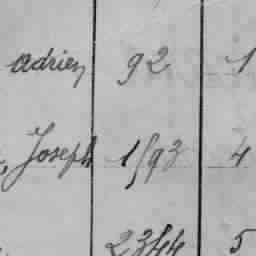 Adrien 92 1
, Joseph 1593 4
2344 5